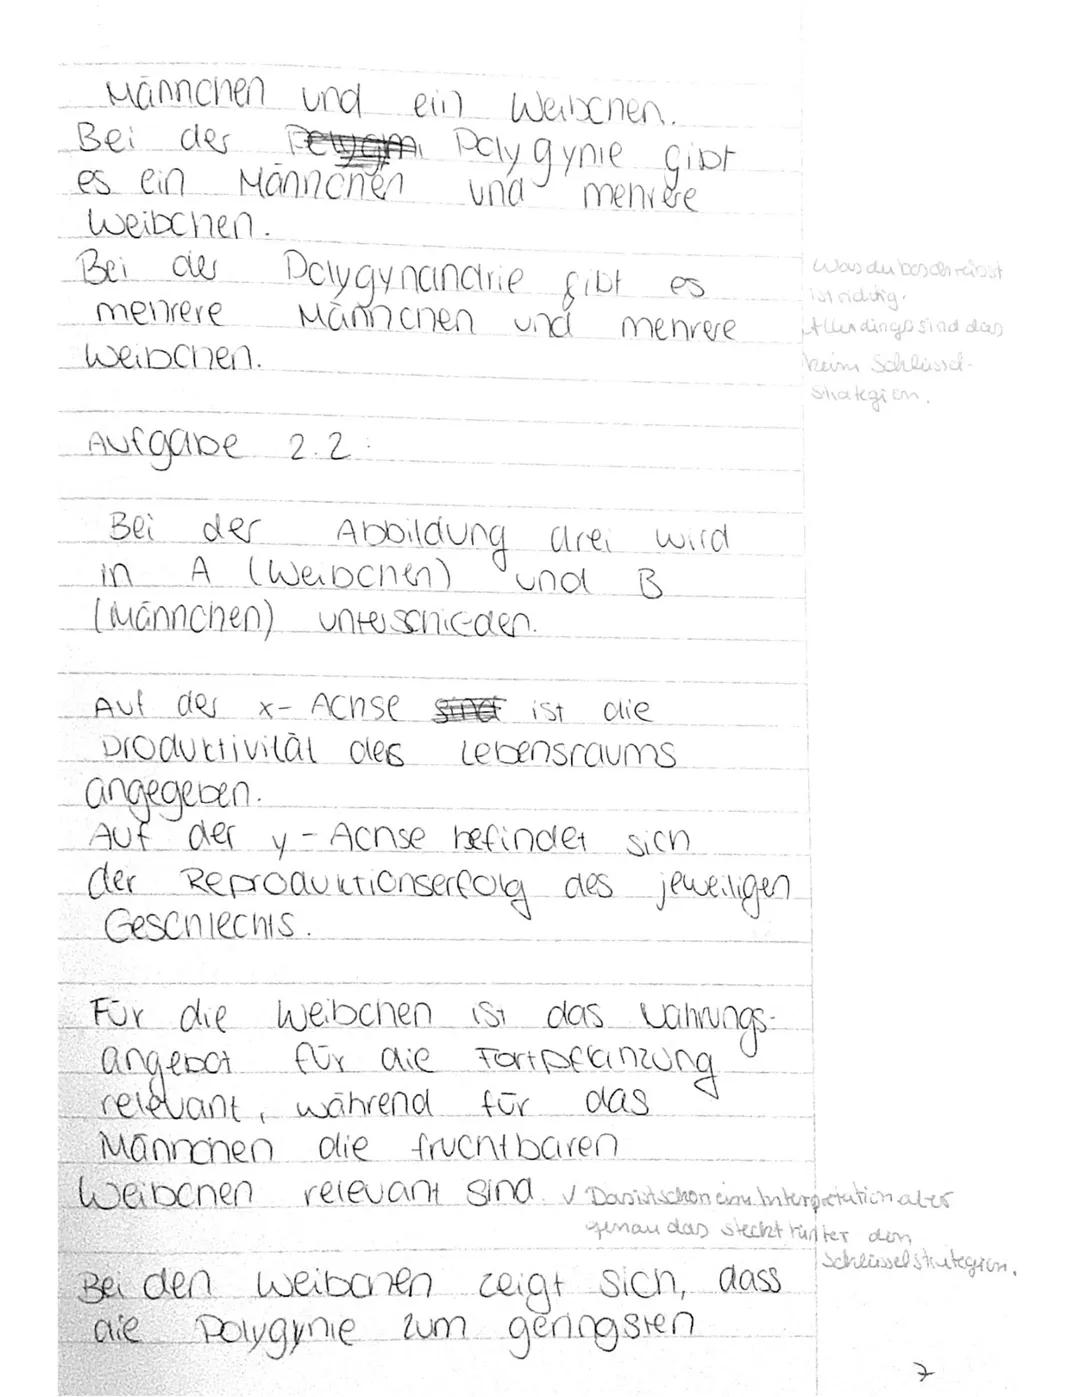 Männchen und ein Weibchen.
Bei der Polygynie gibt
es ein Männchen und mehrere
Weibchen.
Bei der Polygynandrie gibt es
mehrere Männchen und mehrere
Weibchen.
Was du beschreibst
ist richtig.
Allerdings sind das
keine Schlüssel-
strategien.
Aufgabe 2.2:
Bei der Abbildung drei wird
in A (Weibchen) und B
(Männchen) unterschieden.
Auf der x-Achse sind ist die
Produktivität des Lebensraums
angegeben.
Auf der y-Achse befindet sich
der Reproduktionserfolg des jeweiligen
Geschlechts.
Für die Weibchen ist das Nahrungs-
angebot für die Fortpflanzung
relevant, während für das
Männchen die fruchtbaren
Weibchen relevant sind. √ Das ist schon eine Interpretation aber
genau das steckt hinter den
Schlüsselstrategien.
Bei den Weibchen zeigt sich, dass
die Polygynie zum geringsten
7